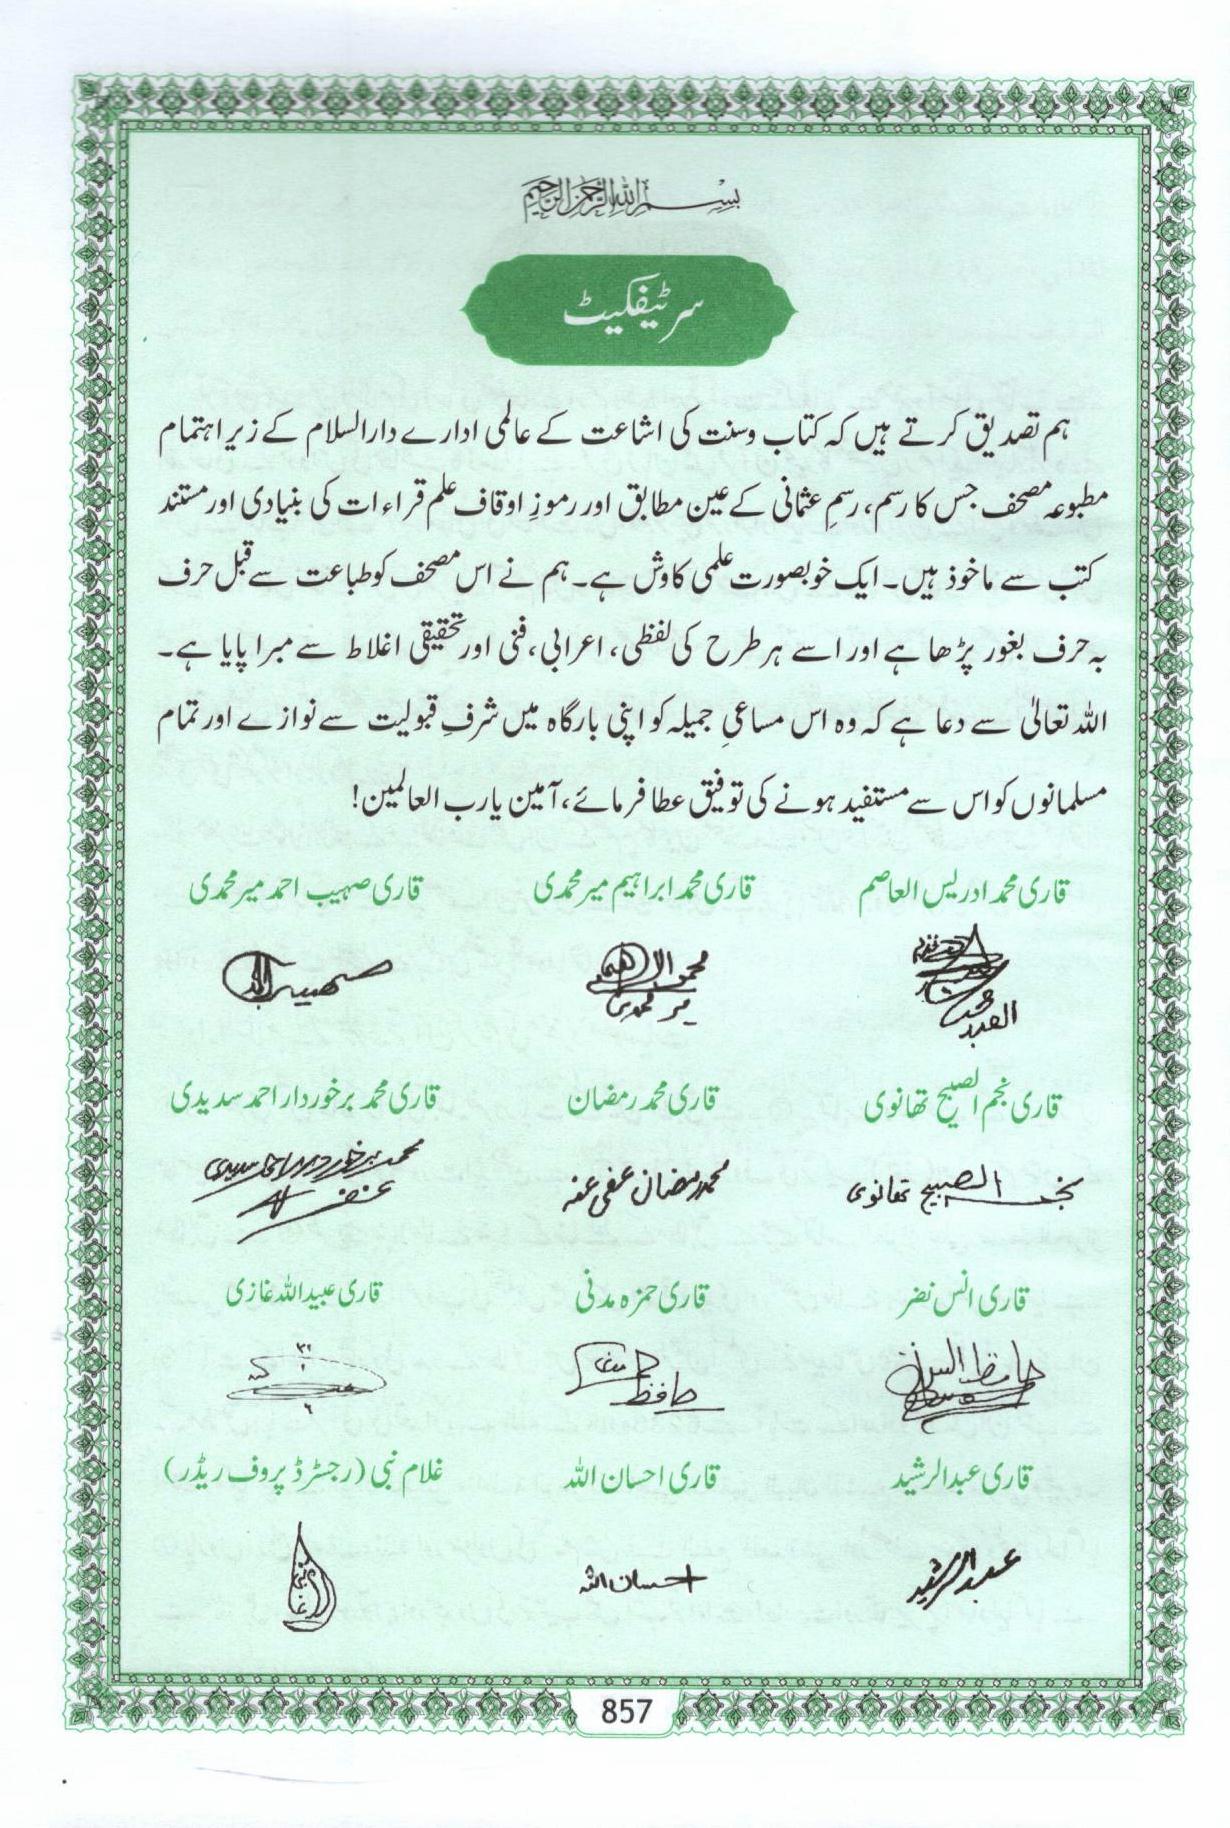 بسم اللہ الرحمن الرحیم
سرٹیفکیٹ
ہم تصدیق کرتے ہیں کہ کتاب وسنت کی اشاعت کے عالمی ادارے دارالسلام کے زیرِ اہتمام
مطبوعہ مصحف جس کا رسم، رسمِ عثمانی کے عین مطابق اور رموزِ اوقاف علم قراءات کی بنیادی اور مستند
کتب سے ماخوذ ہیں۔ ایک خوبصورت علمی کاوش ہے۔ ہم نے اس مصحف کو طباعت سے قبل حرف
بہ حرف بغور پڑھا ہے اور اسے ہر طرح کی لفظی، اعرابی، فنی اور تحقیقی اغلاط سے مبرا پایا ہے۔
اللہ تعالیٰ سے دعا ہے کہ وہ اس مساعیِ جمیلہ کو اپنی بارگاہ میں شرفِ قبولیت سے نوازے اور تمام
مسلمانوں کو اس سے مستفید ہونے کی توفیق عطا فرمائے، آمین یا رب العالمین!
قاری محمد ادریس العاصم قاری محمد ابراہیم میر محمدی قاری صہیب احمد میر محمدی
قاری نجم الصبیح تھانوی قاری محمد رمضان قاری محمد برخوردار احمد سدیدی
نجم الصبیح تھانوی محمد رمضان عفی عنہ محمد برخوردار احمد سدیدی
قاری انس نضر قاری حمزہ مدنی قاری عبیداللہ غازی
حافظ
قاری عبدالرشید قاری احسان اللہ غلام نبی (رجسٹرڈ پروف ریڈر)
عبدالرشید احسان اللہ
857